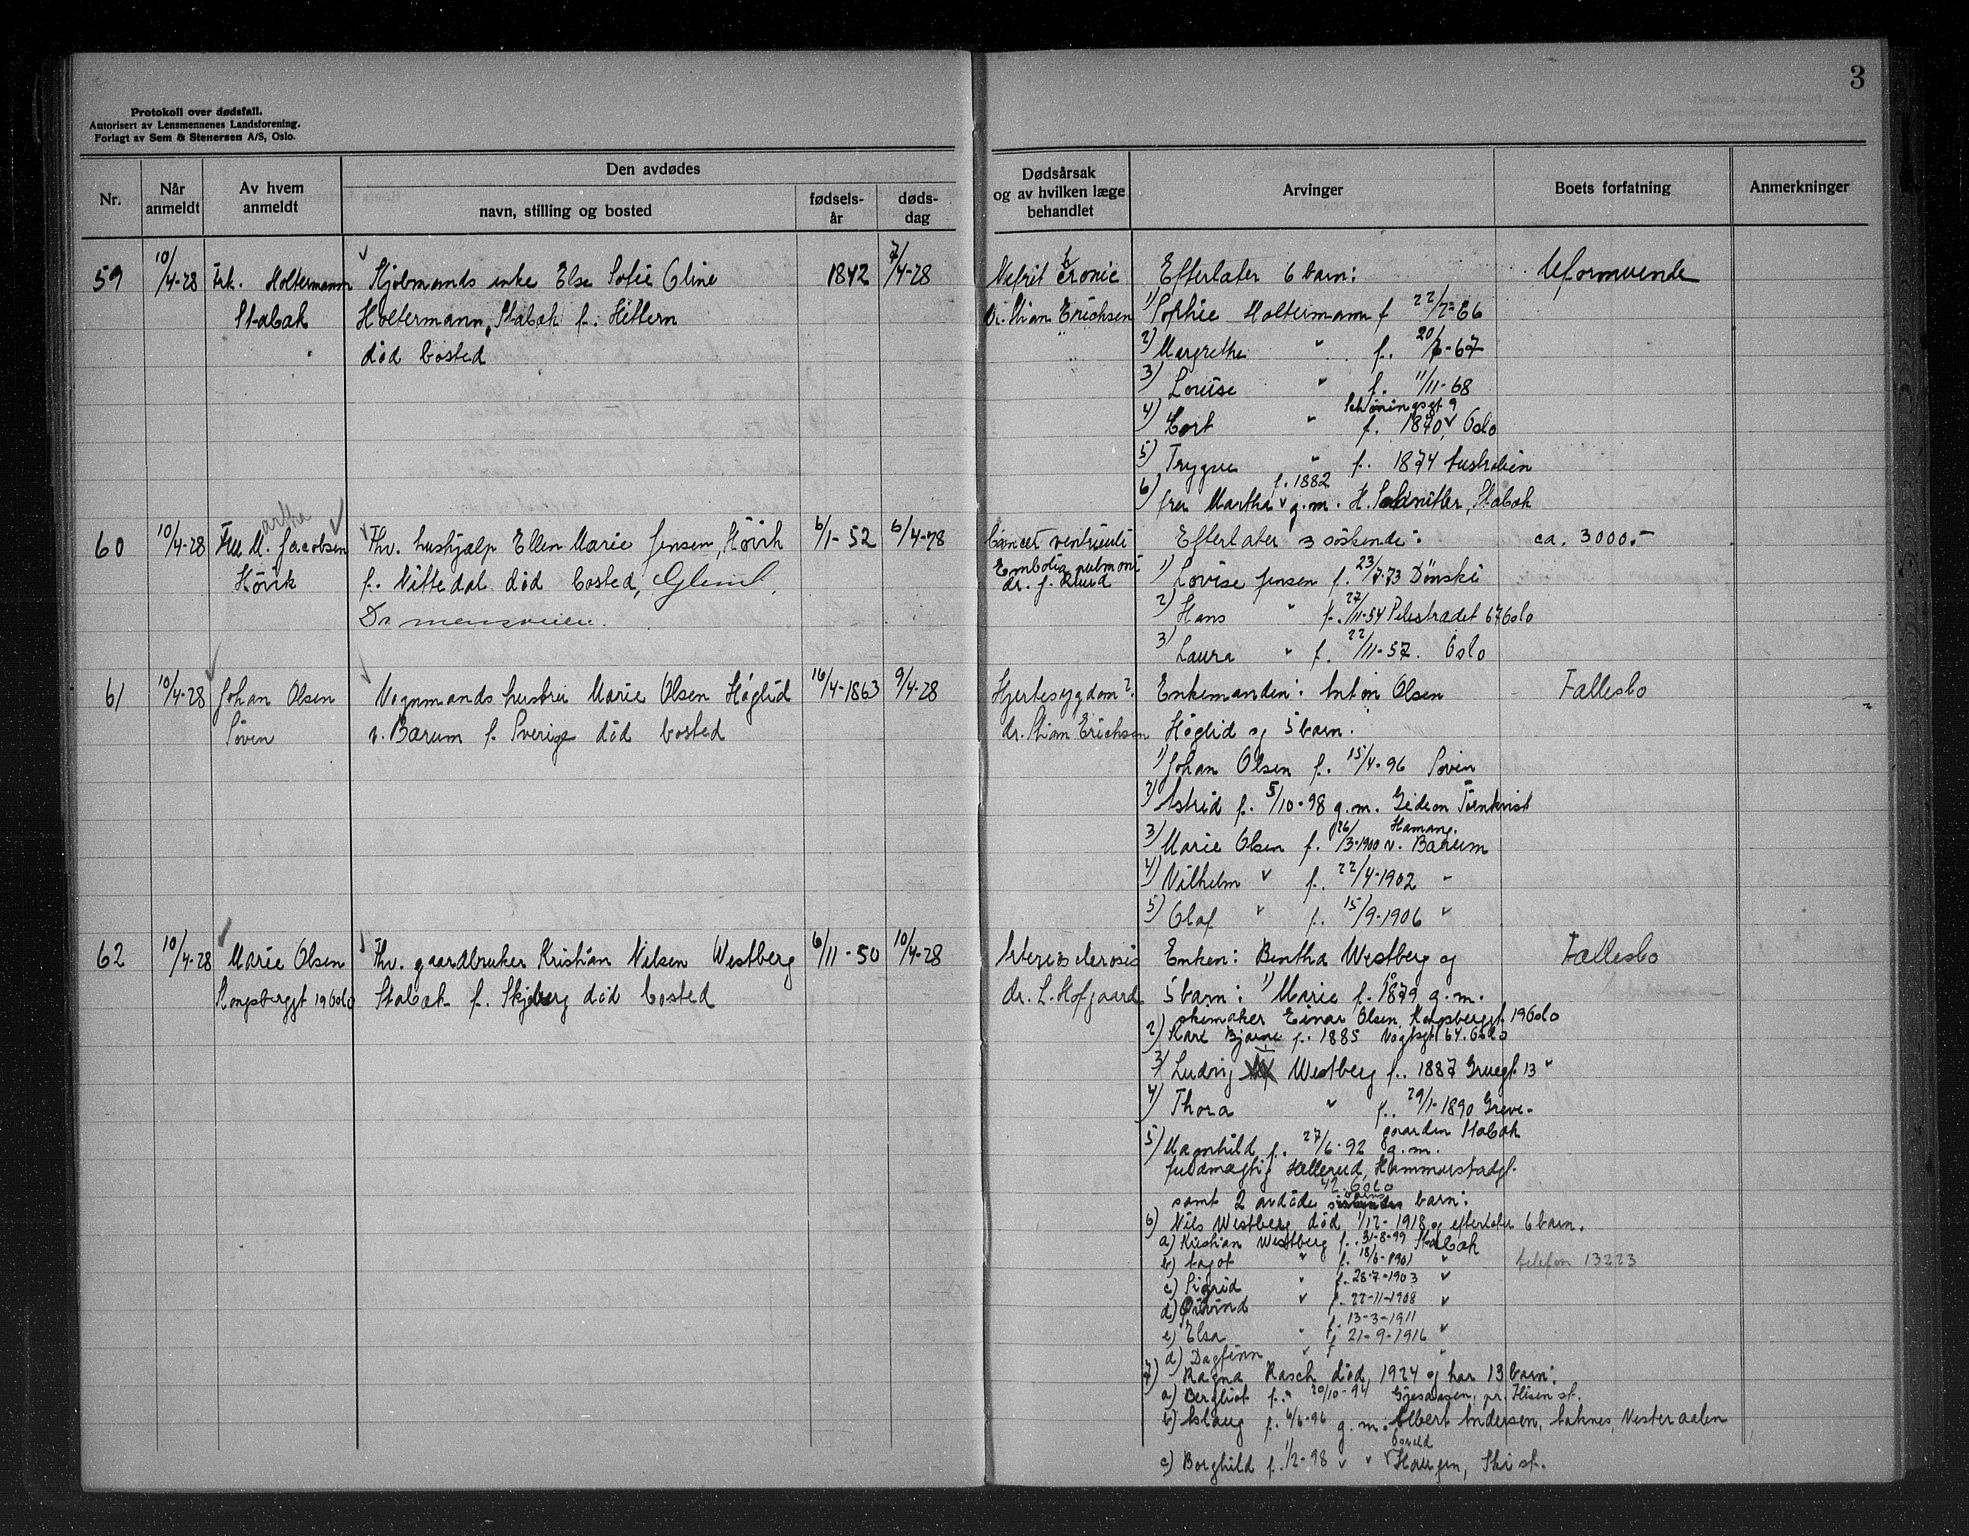 3
Protokoll over dødsfall.
Autorisert av Lensmennenes Landsforening.
Forlagt av Sem & Stenersen A/S, Oslo.
Nr.
Når anmeldt
Av hvem anmeldt
Den avdødes
navn, stilling og bosted
fødsels-år
døds-dag
Dødsårsak og av hvilken læge behandlet
Arvinger
Boets forfatning
Anmerkninger
59 10/4-28 Frk. Holtermann Enke Else Sofie Oline 1842 7/4-28 Nefrit cronic Efterlater 6 barn: Uformuende
Stabæk Holtermann, Stabæk f. Hittern dr. Stian Erichsen 1) Sophie Holtermann f 22/2-66
død bosted 2) Margrethe " f. 20/6-67
3) Louise " f. 11/11-68
Schøningsgt 9
4) Cort " f. 1870, Oslo
5) Trygve " f. 1874 Australien
f. 1882
6) fru Martha g.m. H. Schnitler, Stabæk
60 10/4-28 Fru M. Jacobsen Fhv. hushjælp Ellen Marie Jensen, Høvik 6/1-52 6/4-28 Cancer ventriculi Efterlater 3 søskende: ca. 3000.-
Høvik f. Nittedal død bosted, Embolia pulmoni dr. J. Ruud 1) Lovise Jensen f. 23/7-73 Dønski
2) Hans " f. 27/11-54 Pilestrædet 67 Oslo
3) Laura " f. 22/11-57. Oslo
61 10/4-28 Johan Olsen Vognmands hustru Marie Olsen Høglid 16/4-1863 9/4-28 Hjertesygdom?. Enkemanden: Anton Olsen Fællesbo
v. Bærum f. Sverige død bosted dr. Stian Erichsen Høglid og 5 barn.
1) Johan Olsen f. 15/4-96
2) Astrid f. 5/10-98 g.m. Gideon Törnkvist
Hamang.
3) Marie Olsen f. 26/3-1900 v. Bærum
4) Vilhelm " f. 22/4-1902 "
5) Olaf " f. 15/9-1906 "
62 10/4-28 Marie Olsen Fhv. gaardbruker Kristian Nilsen Westberg 6/11-50 10/4-28 Arteriosclerosis Enken: Bentha Westberg og Fællesbo
Kongsberggt 19 Oslo Stabæk f. Skjeberg død bosted dr. L. Hofgaard 5 barn: 1) Marie f. 1879 g.m.
skomaker Einar Olsen, Kongsberggt. 19 Oslo
2) Karl Bjarne f. 1885 Vogtsgt 64. Oslo
3) Ludvig Westberg f. 1887 Gruegt. 13 "
4) Thora " f. 29/1-1890 Greve-
gaarden Stabæk
5) Magnhild f. 27/6-92 g.m.
fuldmægtig Hellerud, Hammerstadgt.
42. Oslo
samt 2 avdøde barn:
6) Nils Westberg død 1/12-1918 og efterlater 6 barn.
a) Kristian Westberg f. 31-8-99 Stabæk
b) Aagot " f. 18/6-1901 " telefon 13223
c) Sigrid " f. 28-7-1903 "
d) Øivind " f. 22-11-1908 "
e) Elsa " f. 13-3-1911
d) Dagfinn " f 21-9-1916 "
7) Ragna Rasch død 1924 og har 13 barn:
a) Bergliot f. 20/10-94
b) Aslaug f. 6/6-96 g.m. Albert Andersen, Vesteraalen
c) Borghild f. 1/2-98 " " Haugen, Ski st.